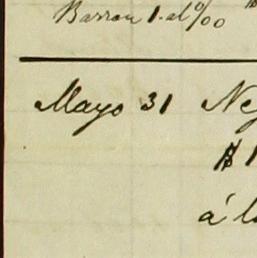 Barron 1. al %
Mayo 31
$ 1
á l